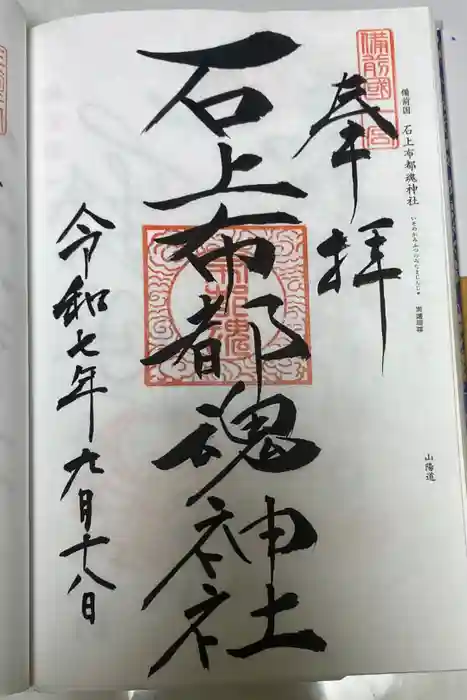 備前国 石上布都魂神社 いそのかみふつのみたまじんじゃ
山陽道
備前國一宮
奉拝
石上布都魂神社
令和七年九月十八日